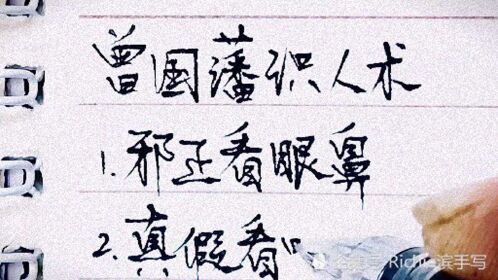 曾国藩识人术
1.邪正看眼鼻
2.真假看
Richie滨手写